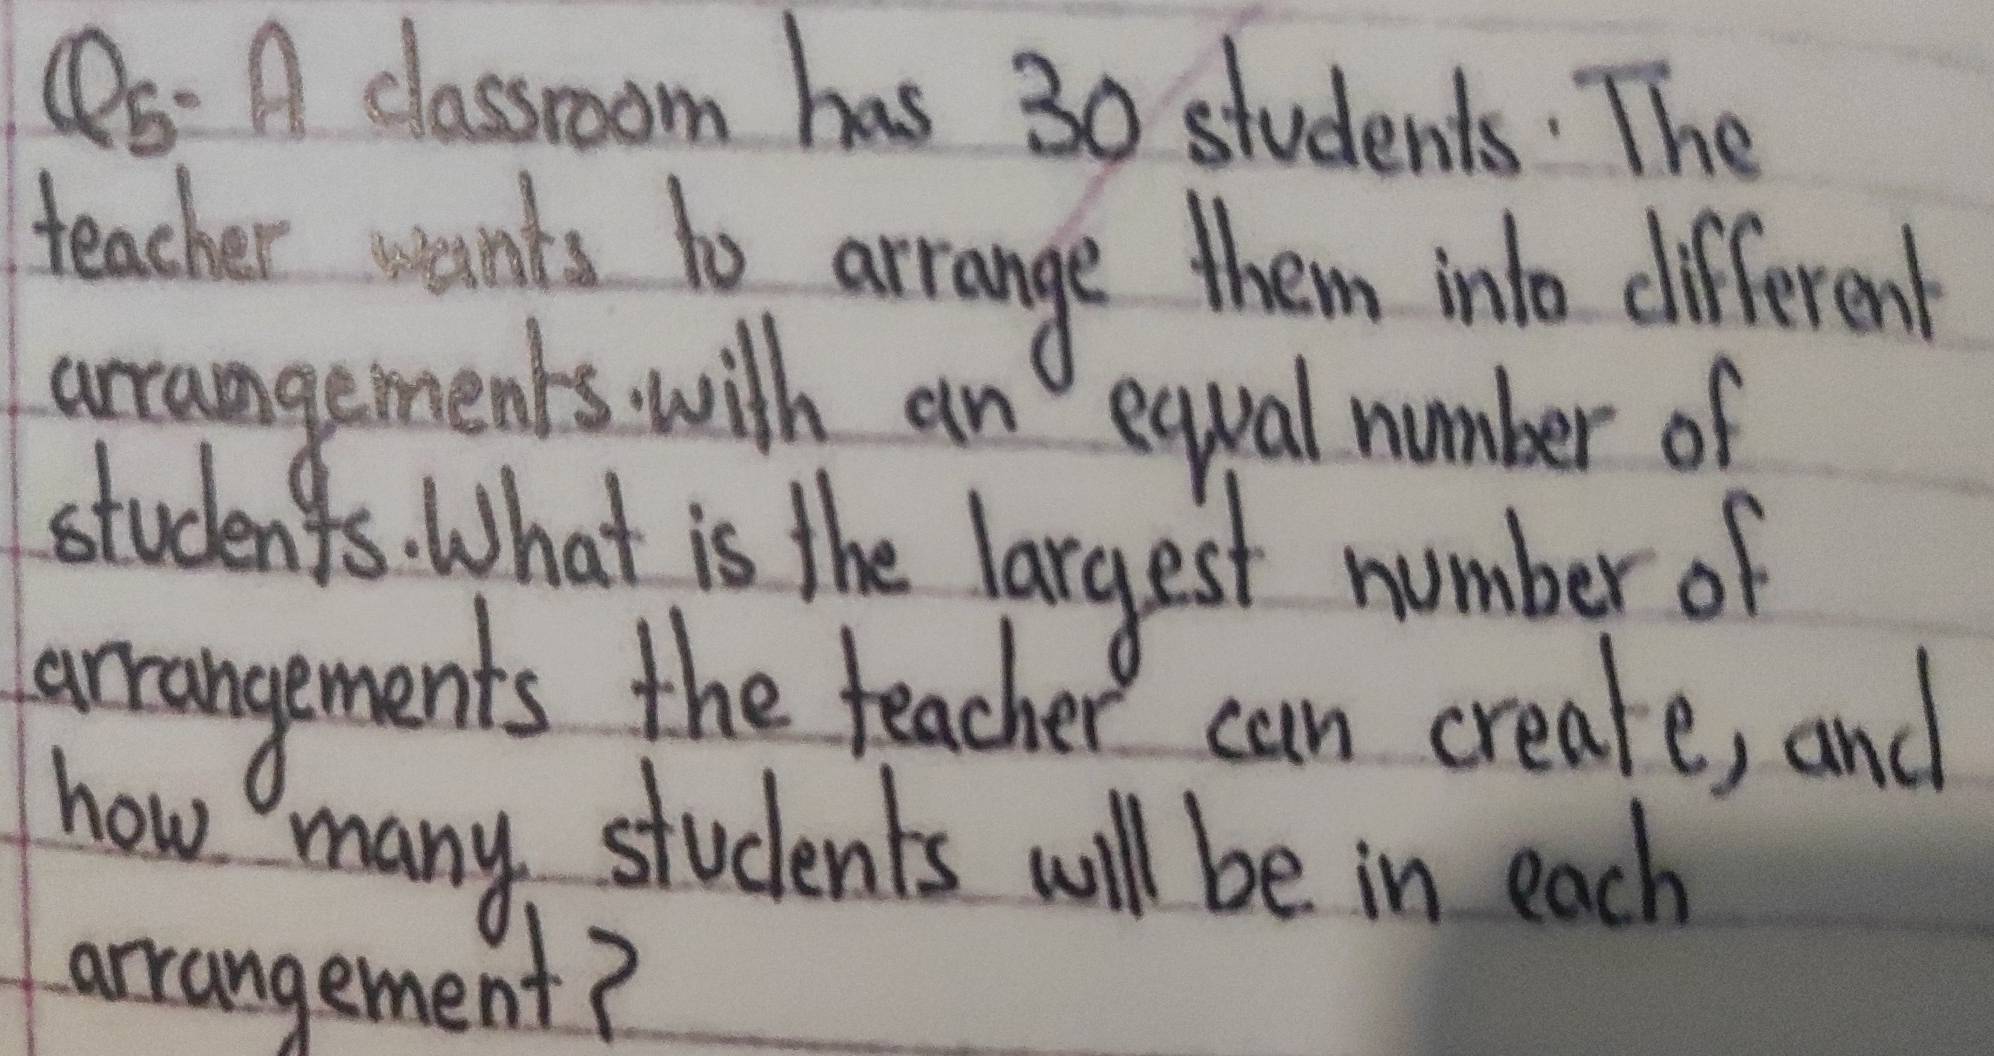 Q5- A classroom has 30 students. The
teacher wants to arrange them into different
arrangements.with an equal number of
students.What is the largest number of
arrangements the teacher can create, and
how many students will be in each
arrangement?